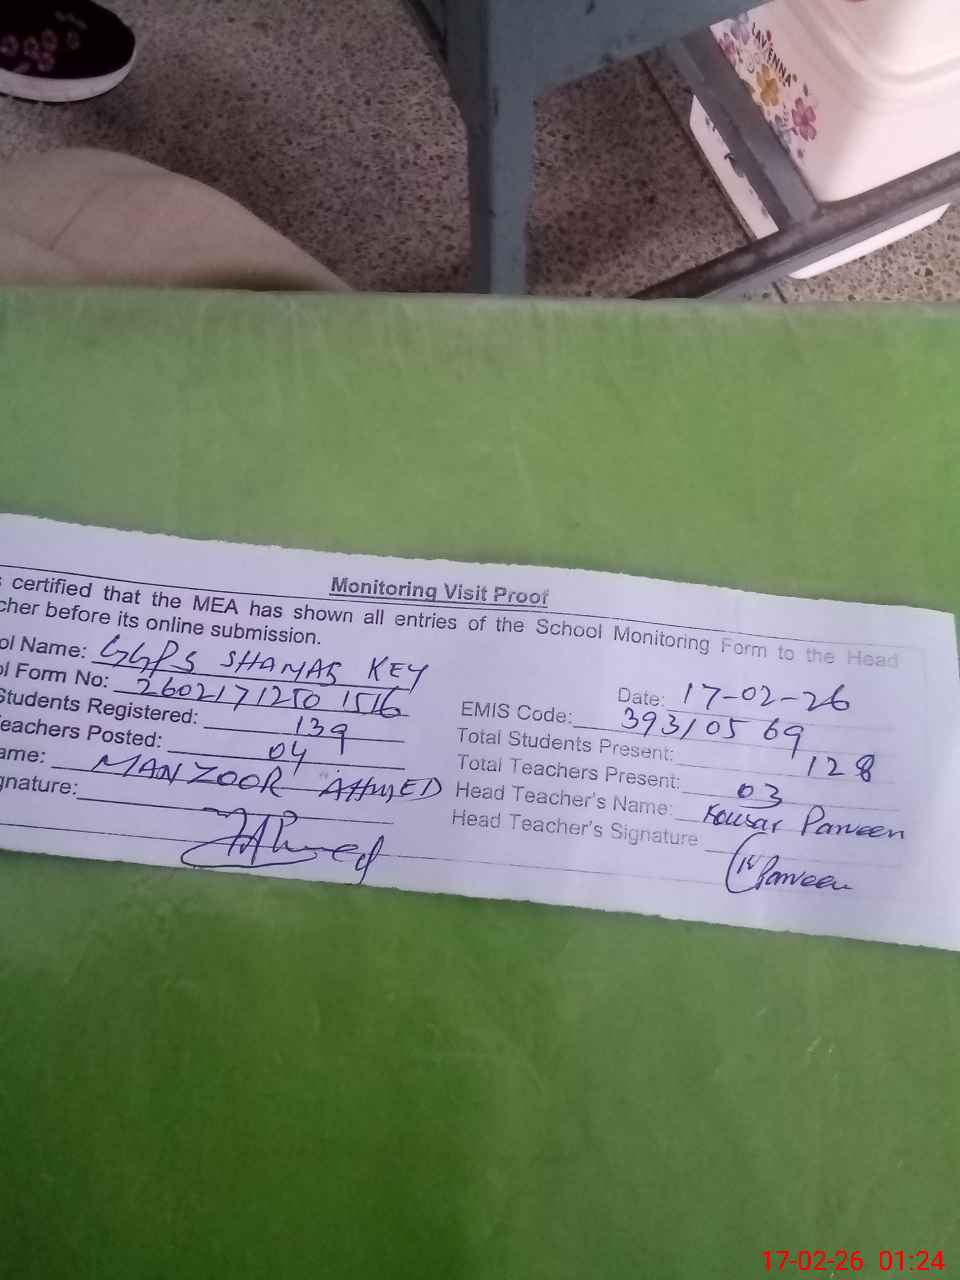 LAVENNA
Monitoring Visit Proof
certified that the MEA has shown all entries of the School Monitoring Form to the Head
cher before its online submission.
ol Name: GGPS SHAMAS KEY
Date: 17-02-26
ol Form No: 2602171250 1516
EMIS Code: 39310569
Students Registered: 139
Total Students Present: 128
eachers Posted: 04
Total Teachers Present: 03
ame: MANZOOR AHMED
Head Teacher's Name: Kousar Parveen
gnature: Ahmed
Head Teacher's Signature Parveen
17-02-26 01:24